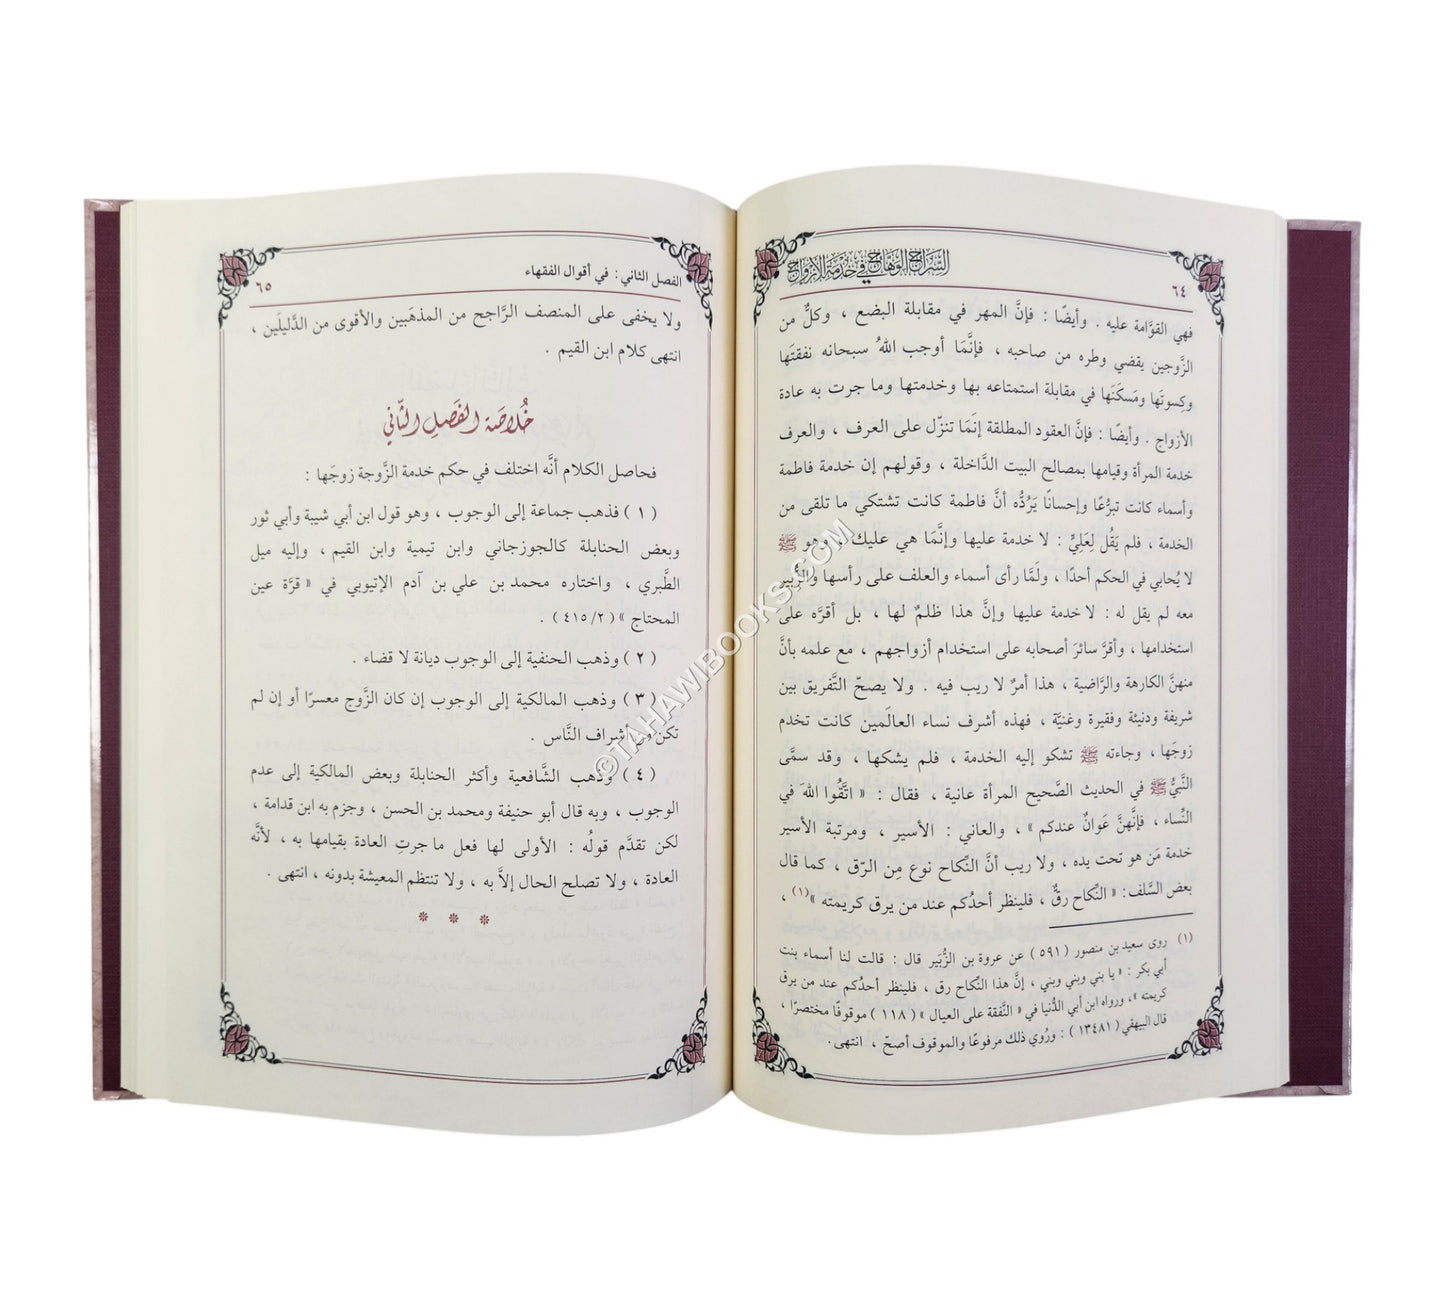 السراج الوهاج في خدمة الأزواج
٦٤
فهي القوَّامة عليه . وأيضًا : فإنَّ المهر في مقابلة البضع ، وكلٌّ من
الزَّوجين يقضي وطره من صاحبه ، فإنَّمَا أوجب اللهُ سبحانه نفقتَها
وكسوتَها ومَسكَنَها في مقابلة استمتاعه بها وخدمتها وما جرت به عادة
الأزواج . وأيضًا : فإنَّ العقود المطلقة إنَّمَا تنزّل على العرف ، والعرف
خدمة المرأة وقيامها بمصالح البيت الدَّاخلة ، وقولهم إن خدمة فاطمة
وأسماء كانت تبرُّعًا وإحسانًا يَرُدُّه أنَّ فاطمة كانت تشتكي ما تلقى من
الخدمة ، فلم يَقُل لِعَلِيٍّ : لا خدمة عليها وإنَّمَا هي عليك ، وهو ﷺ
لا يُحابي في الحكم أحدًا ، ولَمَّا رأى أسماء والعلف على رأسها والزُّبير
معه لم يقل له : لا خدمة عليها وإنَّ هذا ظلمٌ لها ، بل أقرَّه على
استخدامها ، وأقرَّ سائرَ أصحابه على استخدام أزواجهم ، مع علمه بأنَّ
منهنَّ الكارهة والرَّاضية ، هذا أمرٌ لا ريب فيه . ولا يصحّ التَّفريق بين
شريفة ودنيئة وفقيرة وغنيَّة ، فهذه أشرف نساء العالَمين كانت تخدم
زوجَها ، وجاءته ﷺ تشكو إليه الخدمة ، فلم يشكها ، وقد سمَّى
النَّبيُّ ﷺ في الحديث الصَّحيح المرأة عانية ، فقال : « اتَّقُوا اللهَ في
النِّساء ، فإنَّهنَّ عَوانٌ عندكم » ، والعاني : الأسير ، ومرتبة الأسير
خدمة مَن هو تحت يده ، ولا ريب أنَّ النِّكاح نوع مِن الرّق ، كما قال
بعض السَّلف: « النِّكاح رقٌّ ، فلينظر أحدُكم عند من يرق كريمته »(١) ،
(١) روى سعيد بن منصور ( ٥٩١ ) عن عروة بن الزُّبَير قال : قالت لنا أسماء بنت
أبي بكر : « يا بني وبني وبني ، إنَّ هذا النِّكاح رق ، فلينظر أحدُكم عند من يرق
كريمته »، ورواه ابن أبي الدُّنيا في « النَّفقة على العيال » ( ١١٨ ) موقوفًا مختصرًا ،
قال البيهقي ( ١٣٤٨١ ) : ورُوي ذلك مرفوعًا والموقوف أصحّ ، انتهى.
الفصل الثاني: في أقوال الفقهاء
٦٥
ولا يخفى على المنصف الرَّاجح من المذهَبين والأقوى من الدَّليلَين ،
انتهى كلام ابن القيم .
خُلاصَة الفَصلِ الثّاني
فحاصل الكلام أنَّه اختلف في حكم خدمة الزَّوجة زوجَها :
( ١ ) فذهب جماعة إلى الوجوب ، وهو قول ابن أبي شيبة وأبي ثور
وبعض الحنابلة كالجوزجاني وابن تيمية وابن القيم ، وإليه ميل
الطَّبري ، واختاره محمد بن علي بن آدم الإتيوبي في « قرَّة عين
المحتاج » ( ٢/ ٤١٥ ) .
( ٢ ) وذهب الحنفية إلى الوجوب ديانة لا قضاء .
( ٣ ) وذهب المالكية إلى الوجوب إن كان الزَّوج معسرًا أو إن لم
تكن من أشراف النَّاس .
( ٤ ) وذهب الشَّافعية وأكثر الحنابلة وبعض المالكية إلى عدم
الوجوب ، وبه قال أبو حنيفة ومحمد بن الحسن ، وجزم به ابن قدامة ،
لكن تقدَّم قولُه : الأولى لها فعل ما جرتِ العادة بقيامها به ، لأنَّه
العادة ، ولا تصلح الحال إلاَّ به ، ولا تنتظم المعيشة بدونه ، انتهى .
* * *
©TAHAWIBOOKS.COM